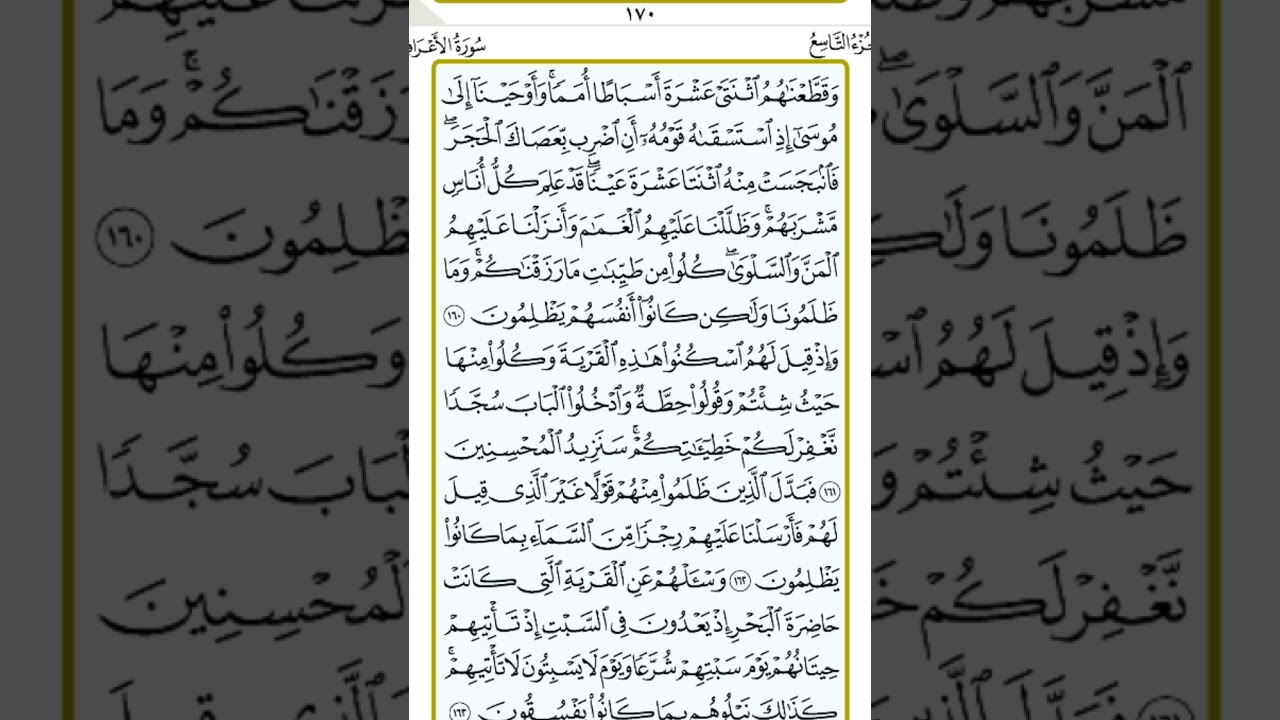 ١٧٠
سُورَةُ الأَعْرَاف
الجُزْءُ التَّاسِعُ
وَقَطَّعْنَٰهُمُ ٱثْنَتَىْ عَشْرَةَ أَسْبَاطًا أُمَمًا ۚ وَأَوْحَيْنَآ إِلَىٰ
مُوسَىٰٓ إِذِ ٱسْتَسْقَىٰهُ قَوْمُهُۥٓ أَنِ ٱضْرِب بِّعَصَاكَ ٱلْحَجَرَ ۖ
فَٱنۢبَجَسَتْ مِنْهُ ٱثْنَتَا عَشْرَةَ عَيْنًا ۖ قَدْ عَلِمَ كُلُّ أُنَاسٍ
مَّشْرَبَهُمْ ۚ وَظَلَّلْنَا عَلَيْهِمُ ٱلْغَمَٰمَ وَأَنزَلْنَا عَلَيْهِمُ
ٱلْمَنَّ وَٱلسَّلْوَىٰ ۖ كُلُوا۟ مِن طَيِّبَٰتِ مَا رَزَقْنَٰكُمْ ۚ وَمَا
ظَلَمُونَا وَلَٰكِن كَانُوٓا۟ أَنفُسَهُمْ يَظْلِمُونَ ١٦٠
وَإِذْ قِيلَ لَهُمُ ٱسْكُنُوا۟ هَٰذِهِ ٱلْقَرْيَةَ وَكُلُوا۟ مِنْهَا
حَيْثُ شِئْتُمْ وَقُولُوا۟ حِطَّةٌ وَٱدْخُلُوا۟ ٱلْبَابَ سُجَّدًا
نَّغْفِرْ لَكُمْ خَطِيٓـَٰٔتِكُمْ ۚ سَنَزِيدُ ٱلْمُحْسِنِينَ
١٦١ فَبَدَّلَ ٱلَّذِينَ ظَلَمُوا۟ مِنْهُمْ قَوْلًا غَيْرَ ٱلَّذِى قِيلَ
لَهُمْ فَأَرْسَلْنَا عَلَيْهِمْ رِجْزًا مِّنَ ٱلسَّمَآءِ بِمَا كَانُوا۟
يَظْلِمُونَ ١٦٢ وَسْـَٔلْهُمْ عَنِ ٱلْقَرْيَةِ ٱلَّتِى كَانَتْ
حَاضِرَةَ ٱلْبَحْرِ إِذْ يَعْدُونَ فِى ٱلسَّبْتِ إِذْ تَأْتِيهِمْ
حِيتَانُهُمْ يَوْمَ سَبْتِهِمْ شُرَّعًا وَيَوْمَ لَا يَسْبِتُونَ لَا تَأْتِيهِمْ ۚ
كَذَٰلِكَ نَبْلُوهُم بِمَا كَانُوا۟ يَفْسُقُونَ ١٦٣